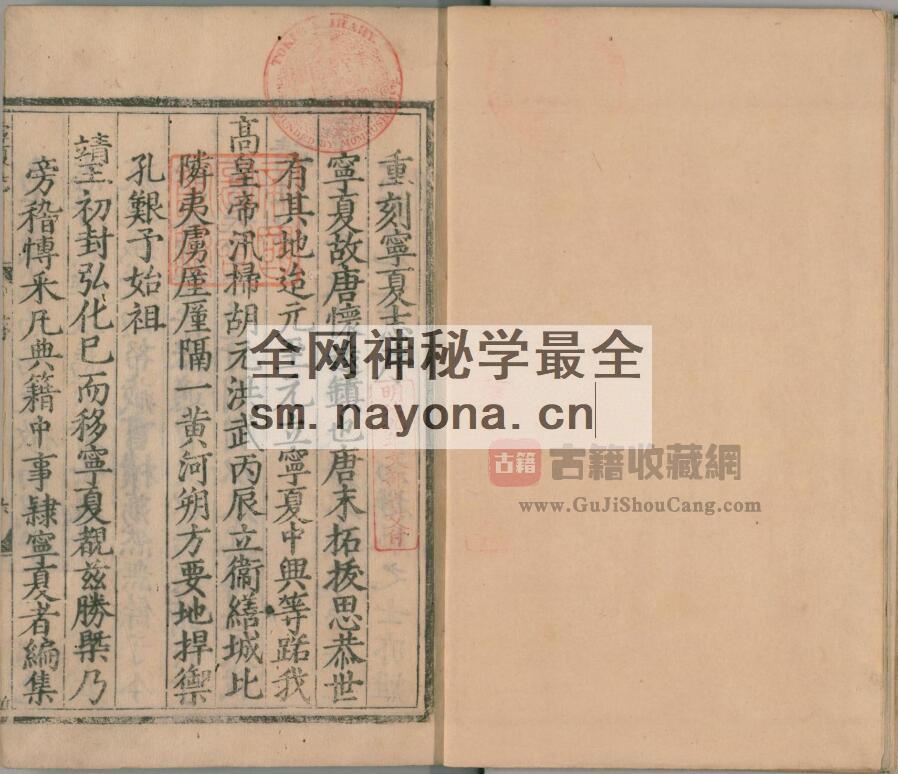 重刻寧夏志
寧夏故唐懷鎮也唐末拓拔思恭世
有其地迨元至元立寧夏中興等路我
高皇帝汛掃胡元洪武丙辰立衞繕城比
隣夷虜厪厪隔一黃河朔方要地捍禦
孔艱予始祖
靖王初封弘化巳而移寧夏覩茲勝槩乃
旁稽愽采凡典籍中事隸寧夏者編集
全网神秘学最全
sm.nayona.cn
古籍
古籍收藏網
www.GuJiShouCang.com